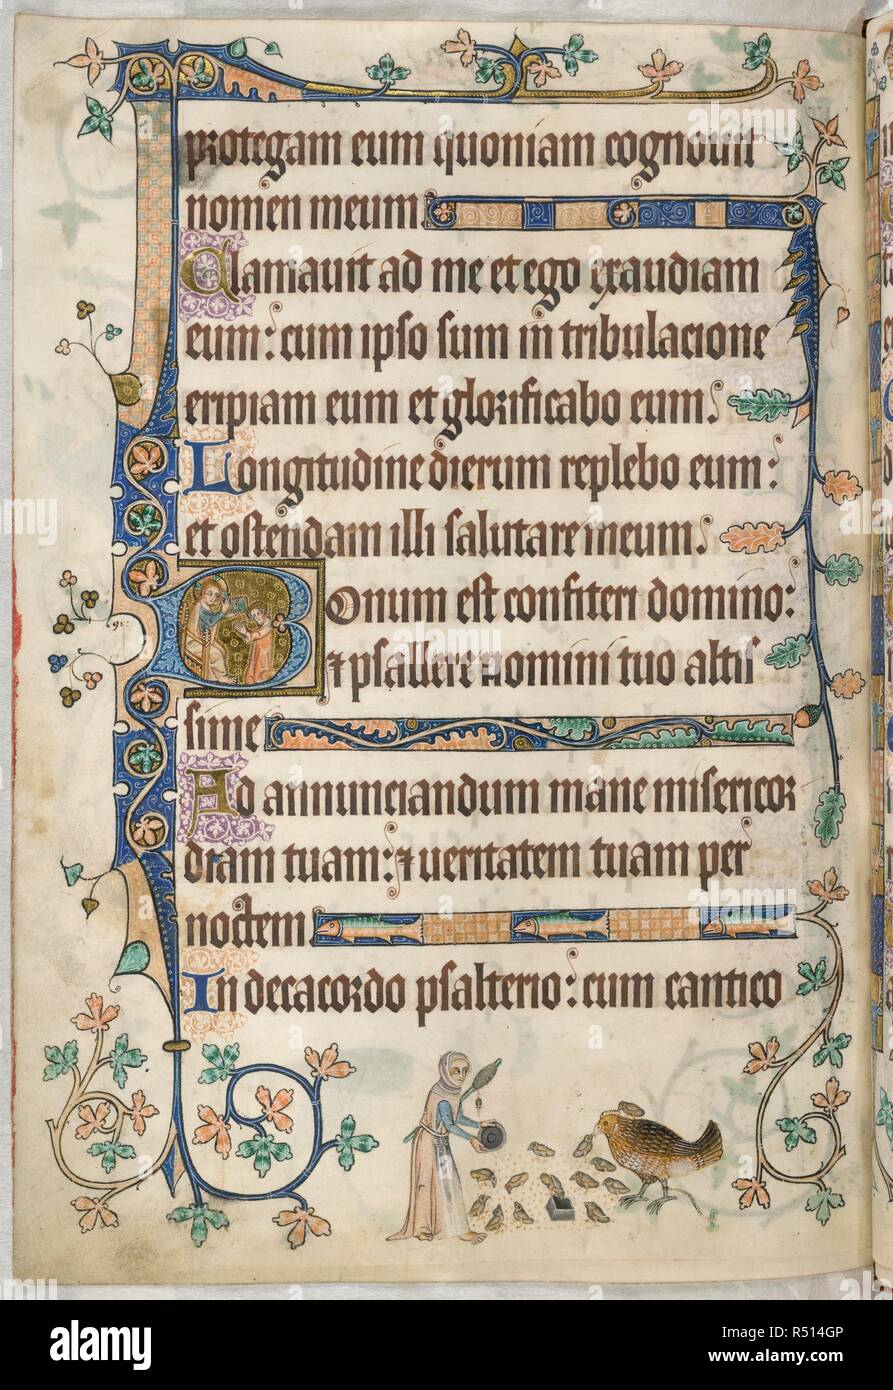 protegam eum quoniam cognouit
nomen meum.
Clamauit ad me et ego exaudiam
eum: cum ipso sum in tribulacione
eripiam eum et glorificabo eum.
Longitudine dierum replebo eum:
et ostendam illi salutare meum.
Bonum est confiteri domino:
et psallere nomini tuo altis
sime
Ad annunciandum mane misericor
diam tuam: et ueritatem tuam per
noctem
In decacordo psalterio: cum cantico
alamy
Image ID: R514GP
www.alamy.com